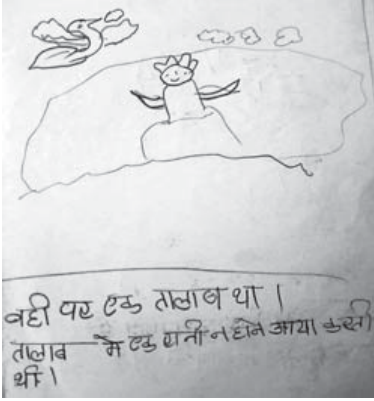 वही पर एक तालाब था ।
तालाब में एक रानी नहाने आया करती
थी ।